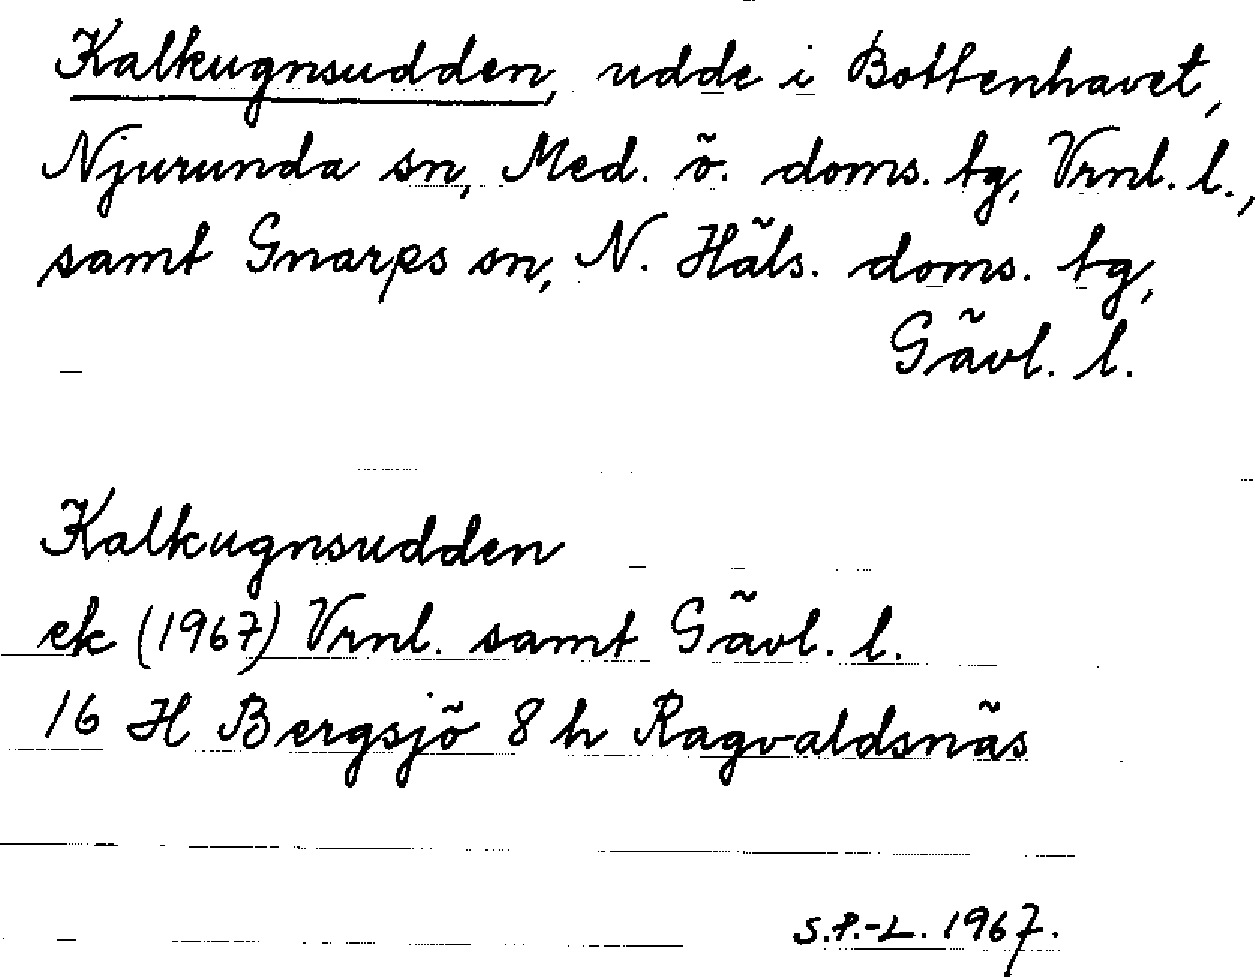 Kalkugnsudden, udde i Bottenhavet,
Njurunda sn, Med. ö. doms. tg, Vrnl. l.,
samt Gnarps sn, N. Häls. doms. tg,
Gävl. l.
Kalkugnsudden
ek (1967) Vrnl. samt Gävl. l.
16 H Bergsjö 8 h Ragvaldsnäs
S.P.-L. 1967.